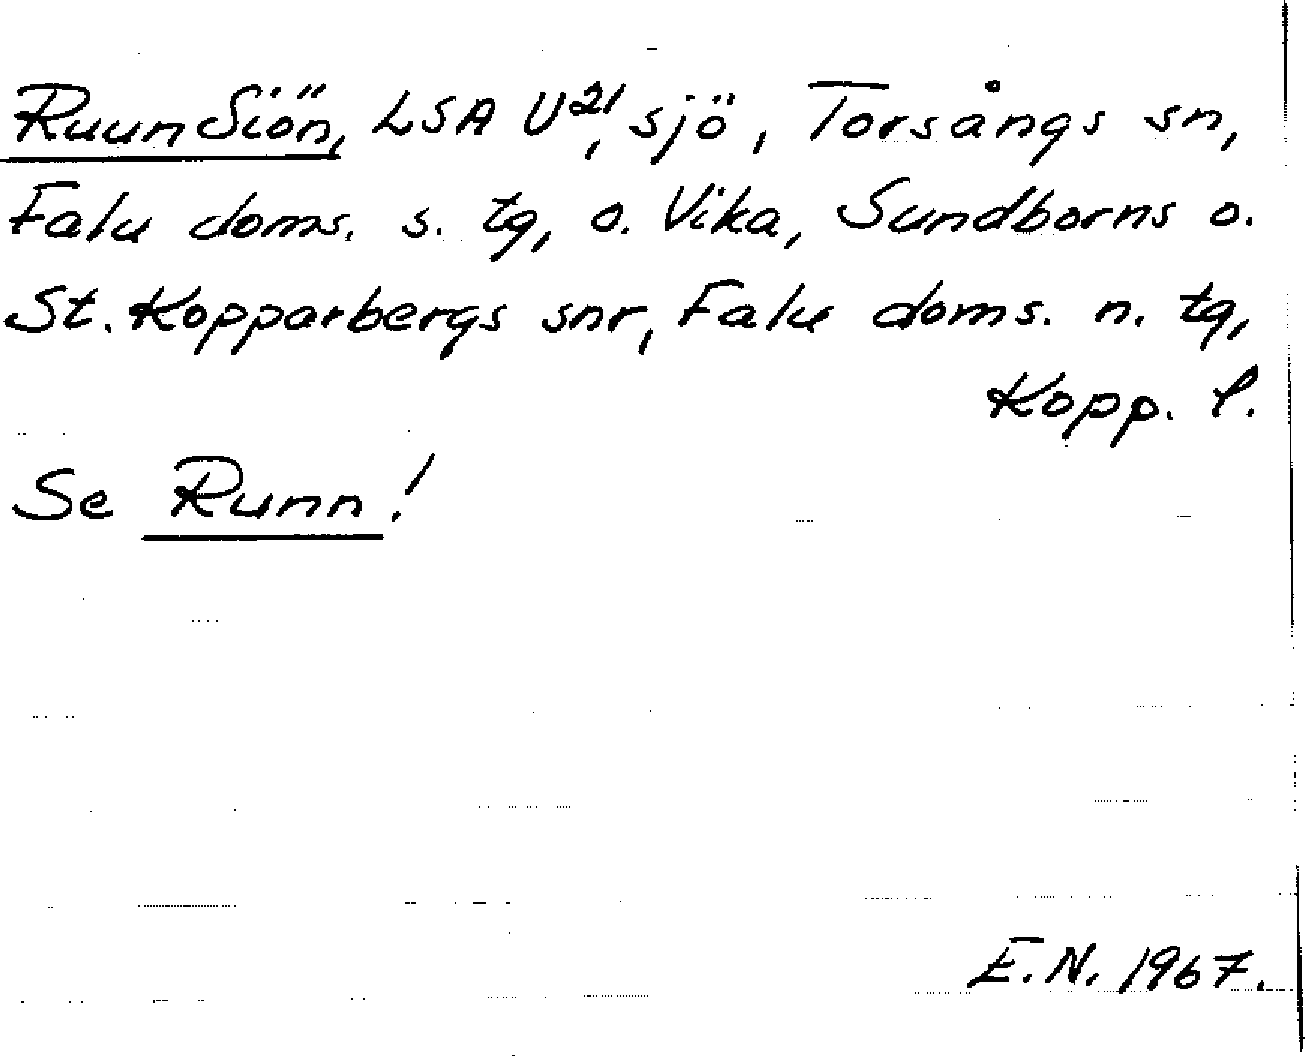 Ruun Siön, LSA U²¹, sjö, Torsångs sn,
Falu doms. s. tg, o. Vika, Sundborns o.
St. Kopparbergs snr, Falu doms. n. tg,
Kopp. l.
Se Runn!
E.N. 1967.